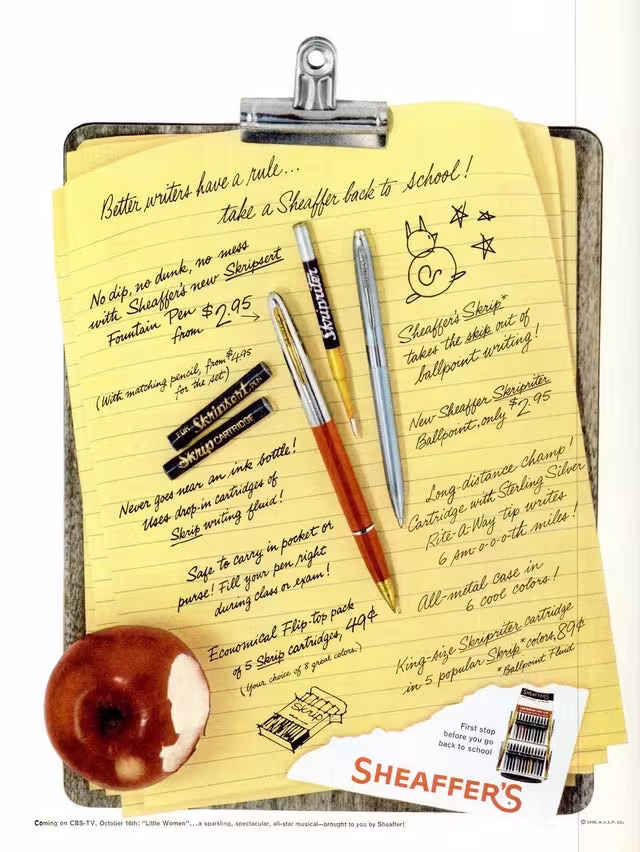 Better writers have a rule...
take a Sheaffer back to school!
No dip, no dunk, no mess
with Sheaffer's new Skripsert
Fountain Pen
from $2.95
(With matching pencil, from $4.95
for the set)
FOR Skripsert PEN
Skrip CARTRIDGE
Never goes near an ink bottle!
Uses drop-in cartridges of
Skrip writing fluid!
Safe to carry in pocket or
purse! Fill your pen right
during class or exam!
Economical Flip-top pack
of 5 Skrip cartridges, 49¢
(Your choice of 8 great colors.)
Skrip
Skripriter
Sheaffer's Skrip*
takes the skip out of
ballpoint writing!
New Sheaffer Skripriter
Ballpoint, only $2.95
Long-distance champ!
Cartridge with Sterling Silver
Rite-A-Way tip writes
6 sm-o-o-o-th miles!
All-metal case in
6 cool colors!
King-size Skripriter cartridge
in 5 popular Skrip* colors, 89¢
*Ballpoint Fluid
First stop
before you go
back to school
SHEAFFER'S
SHEAFFER'S
Coming on CBS-TV, October 16th: "Little Women"...a sparkling, spectacular, all-star musical—brought to you by Sheaffer!